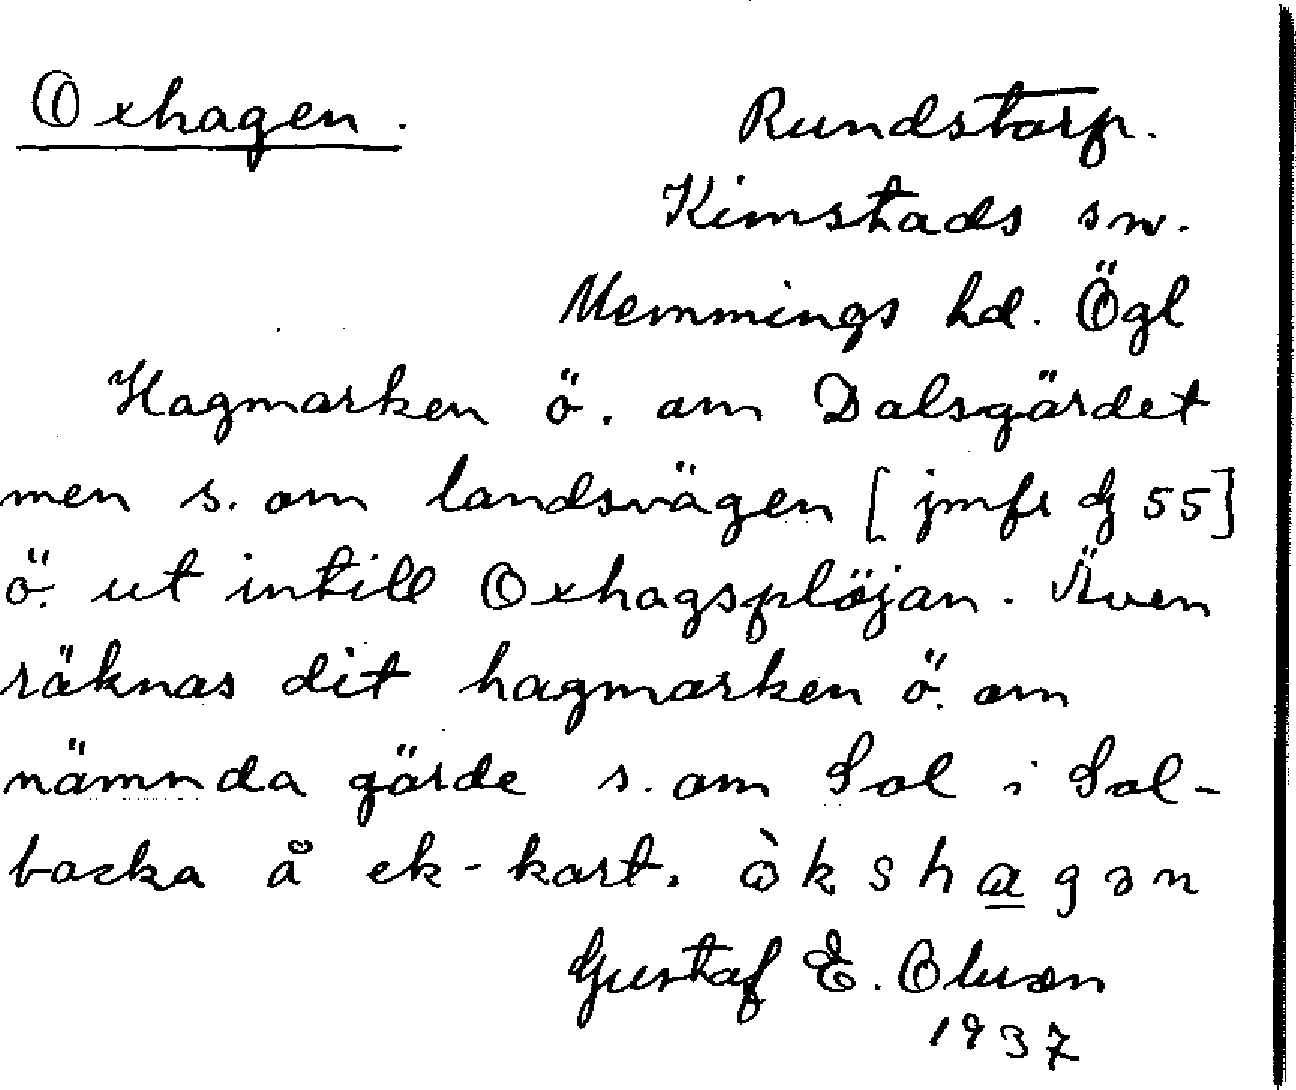 Oxhagen.
Rundstorp.
Kimstads sn.
Memmings hd. Ögl
Hagmarken ö. om Dalsgärdet
men s. om landsvägen [jmfr dj 55]
ö. ut intill Oxhagsplöjan. Även
räknas dit hagmarken ö. om
nämnda gärde s. om Sol i Sol-
backa å ek-kart. òkshagən
Gustaf E.
1937